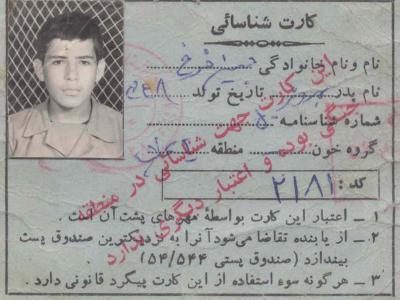 کارت شناسائی
نام و نام خانوادگی
نام پدر تاریخ تولد
شماره شناسنامه
گروه خون منطقه
کد : ۲۱۸۱
این کارت جهت شناسائی در منطقه
جنگی بوده و اعتبار دیگری ندارد
۱ ـ اعتبار این کارت بواسطه مهرهای پشت آن است .
۲ ـ از یابنده تقاضا می‌شود آنرا به نزدیکترین صندوق پست
بیندازد (صندوق پستی ۵۴۴/۱۵۴)
۳ ـ هر گونه سوء استفاده از این کارت پیگرد قانونی دارد .